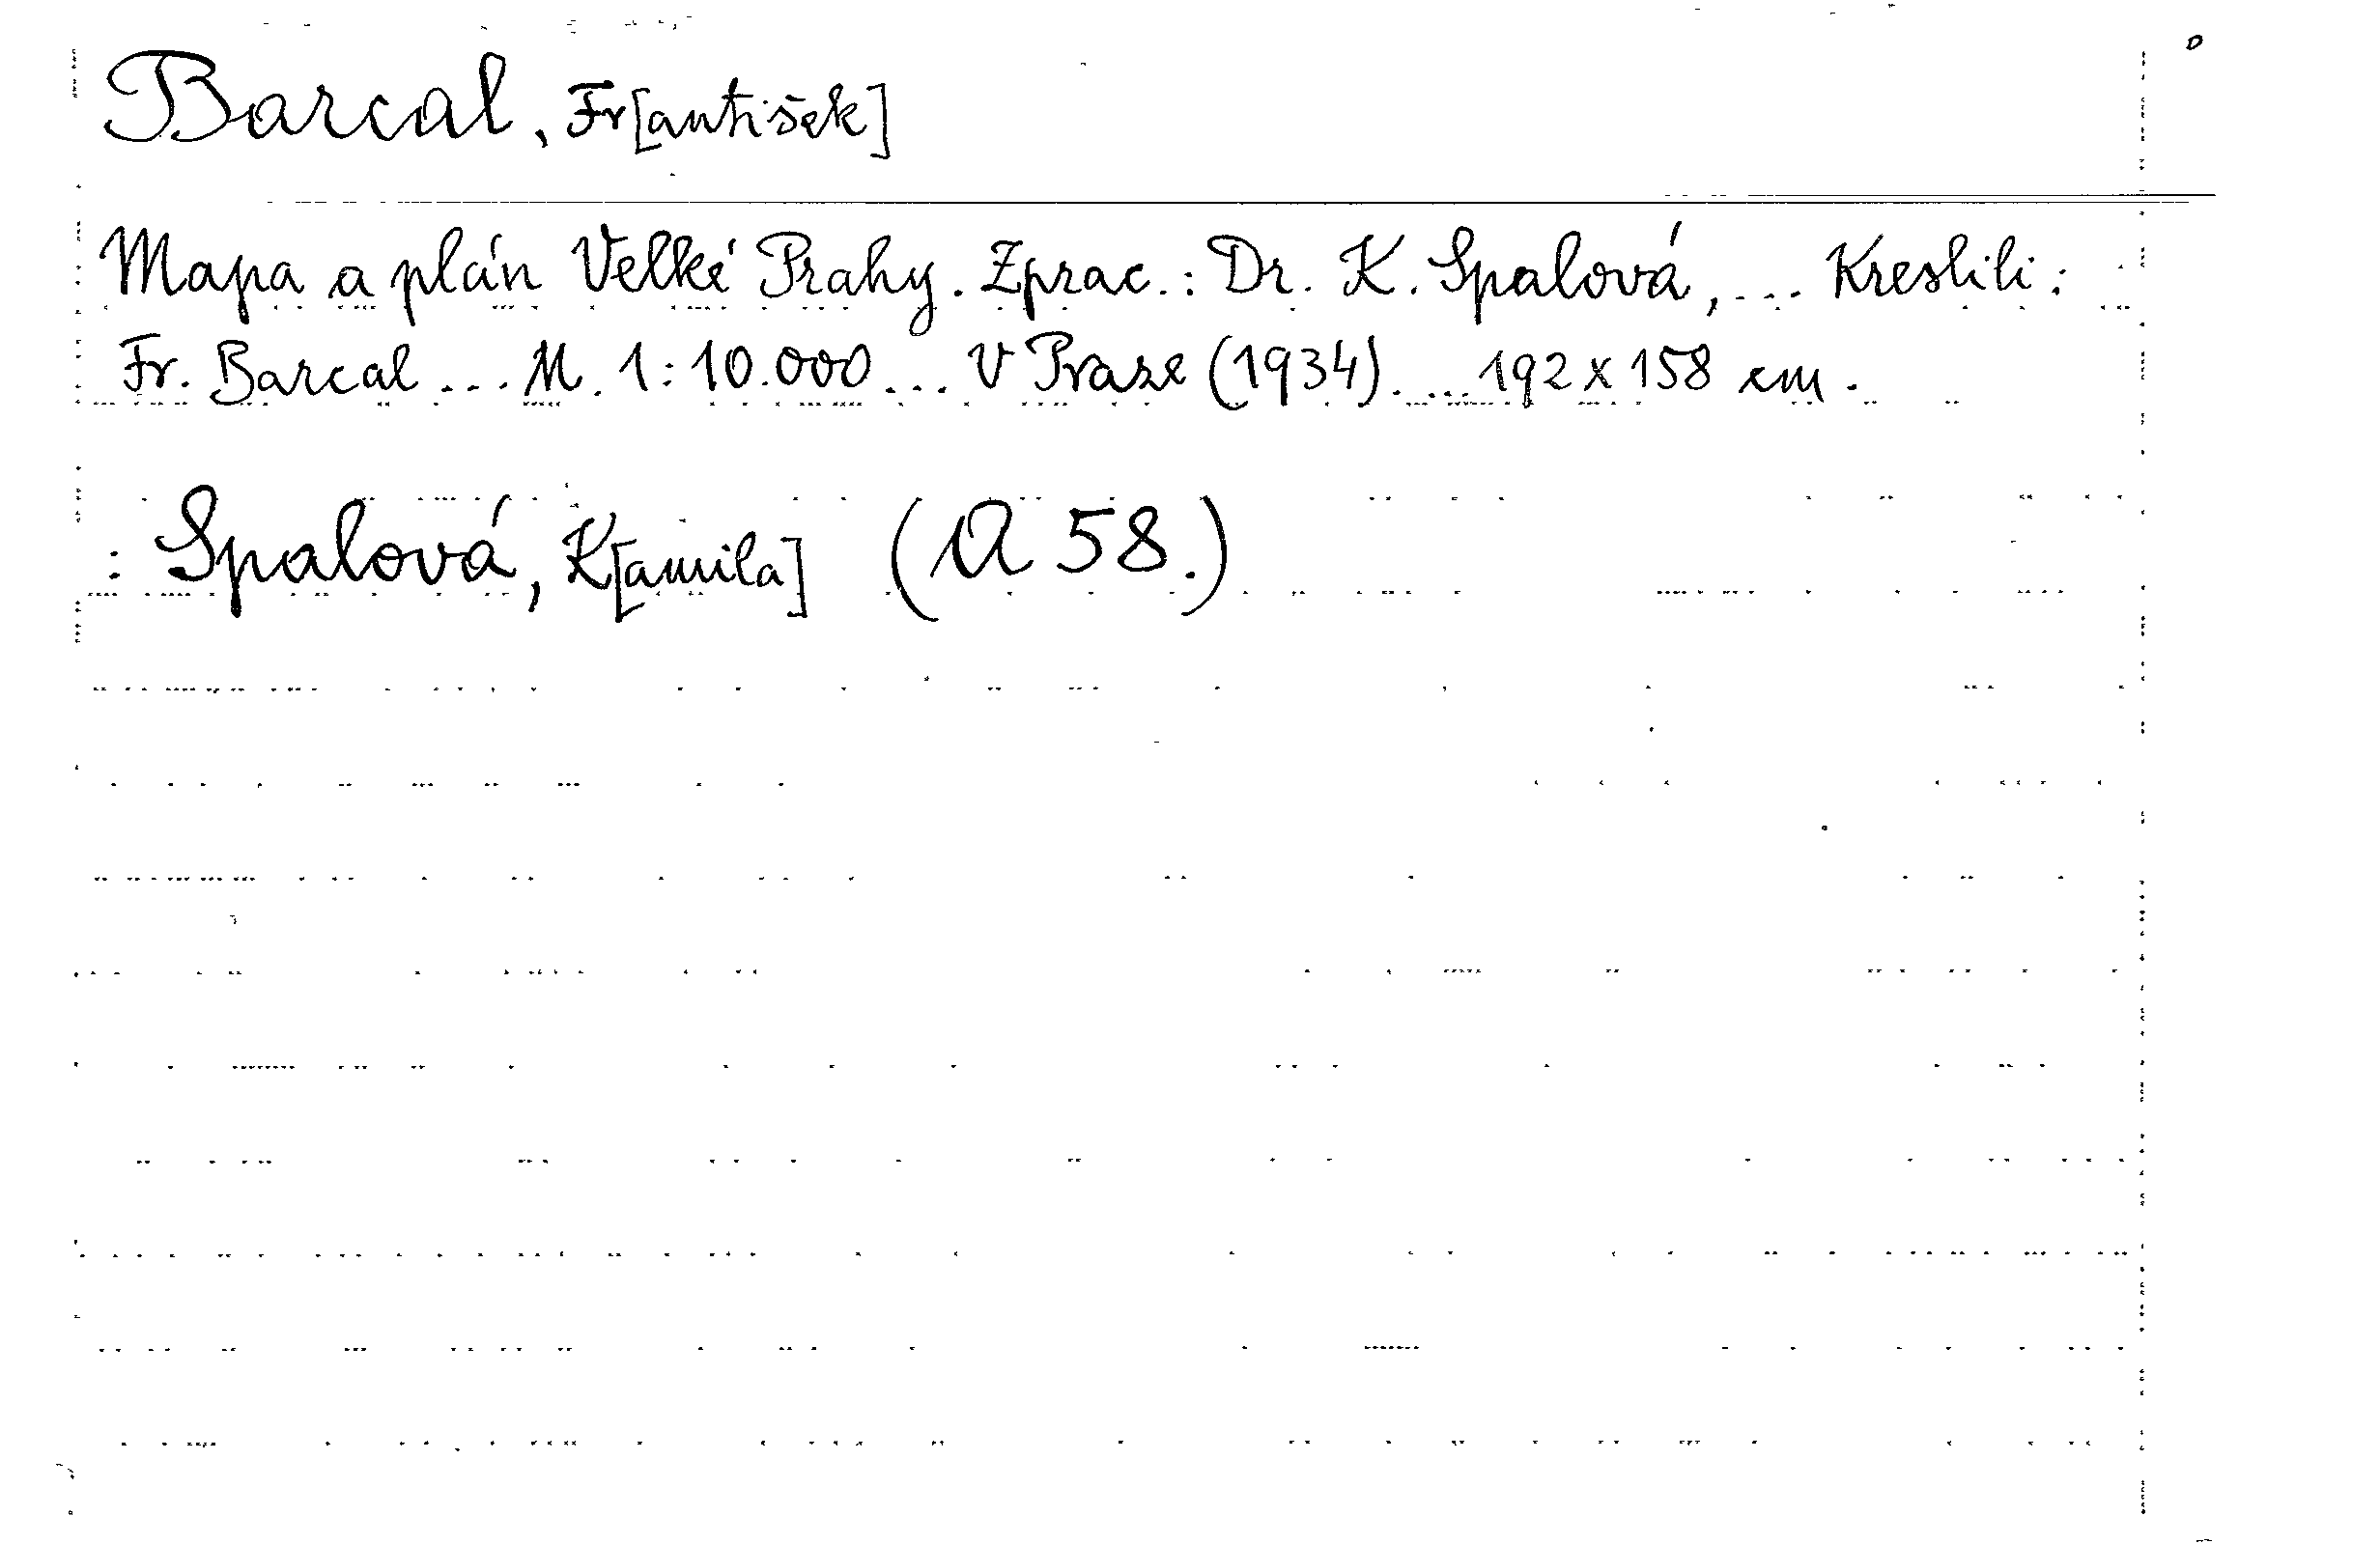 Barcal, Fr[antišek]
Mapa a plán Velké Prahy. Zprac.: Dr. K. Spalová, ... Kreslili:
Fr. Barcal ... M. 1:10.000 ... V Praze (1934). ... 192 x 158 cm.
: Spalová, K[amila] (A 58.)